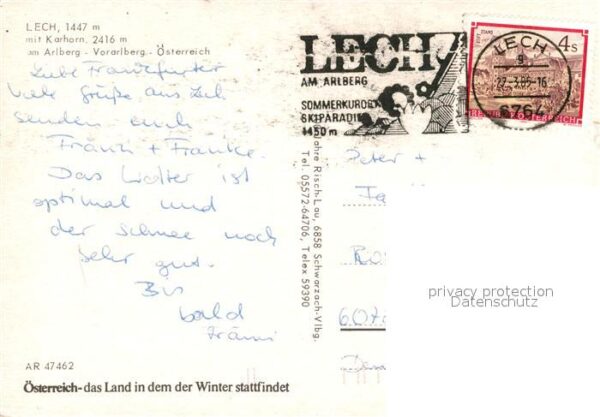 LECH, 1447 m
mit Karhorn, 2416 m
am Arlberg - Vorarlberg - Österreich
Liebe Frankfurter
viele Grüße aus Lech
senden euch
Franzi + Franke.
Das Wetter ist
optimal und
der Schnee noch
sehr gut.
Bis
bald
Fränzi
AR 47462
Österreich-das Land in dem der Winter stattfindet
LECH
AM ARLBERG
SOMMERKURORT
SKIPARADIES
1450 m
LECH
a
27.3.85-16
6764
4 s
REPUBLIK ÖSTERREICH
Risch-Lau, 6858 Schwarzach-Vlbg.
Tel. 05572-64706, Telex 59390
Peter +
607
privacy protection
Datenschutz